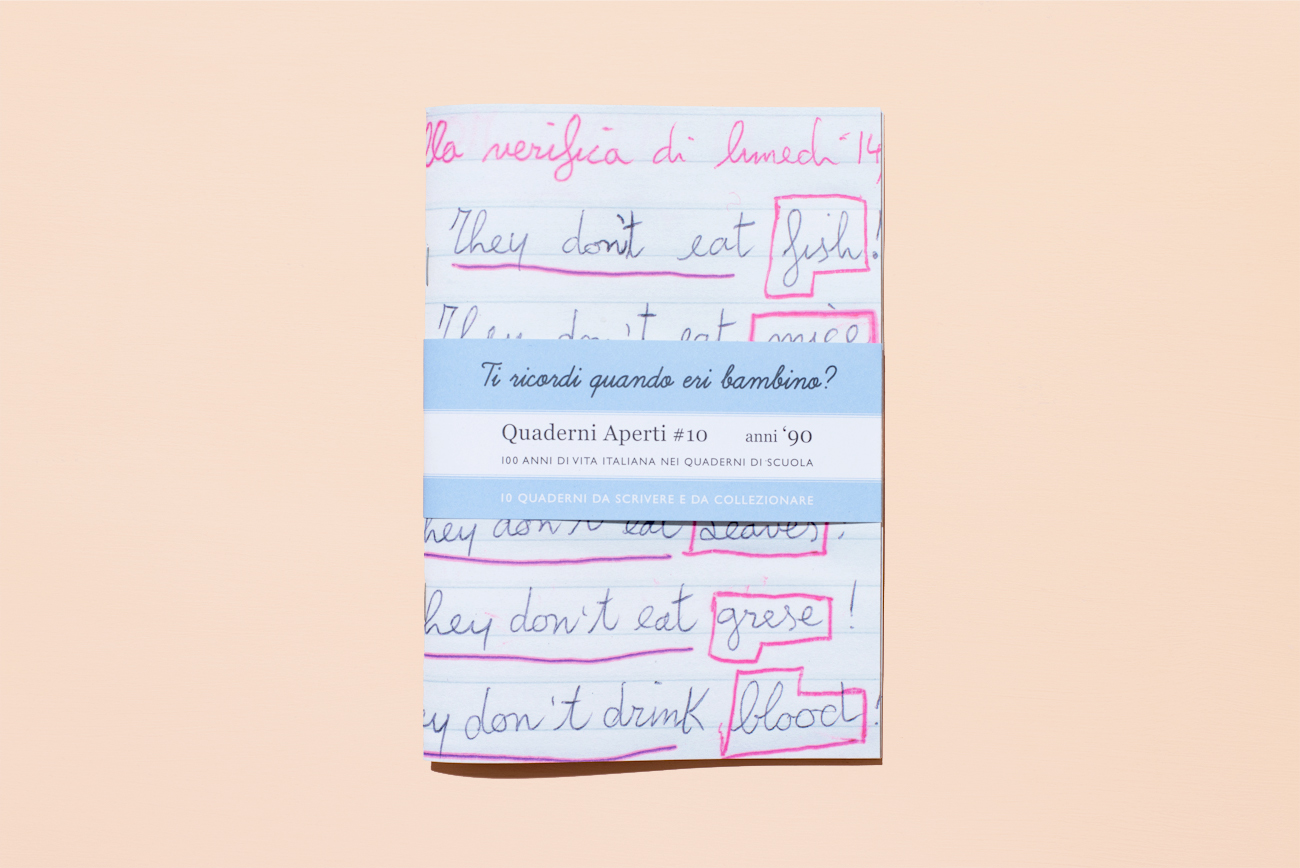 lla verifica di lunedì 14
They don't eat fish!
They don't eat mice
Ti ricordi quando eri bambino?
Quaderni Aperti #10 anni ‘90
100 ANNI DI VITA ITALIANA NEI QUADERNI DI SCUOLA
10 QUADERNI DA SCRIVERE E DA COLLEZIONARE
hey don't eat leaves!
hey don't eat grese!
ey don't drink blood!